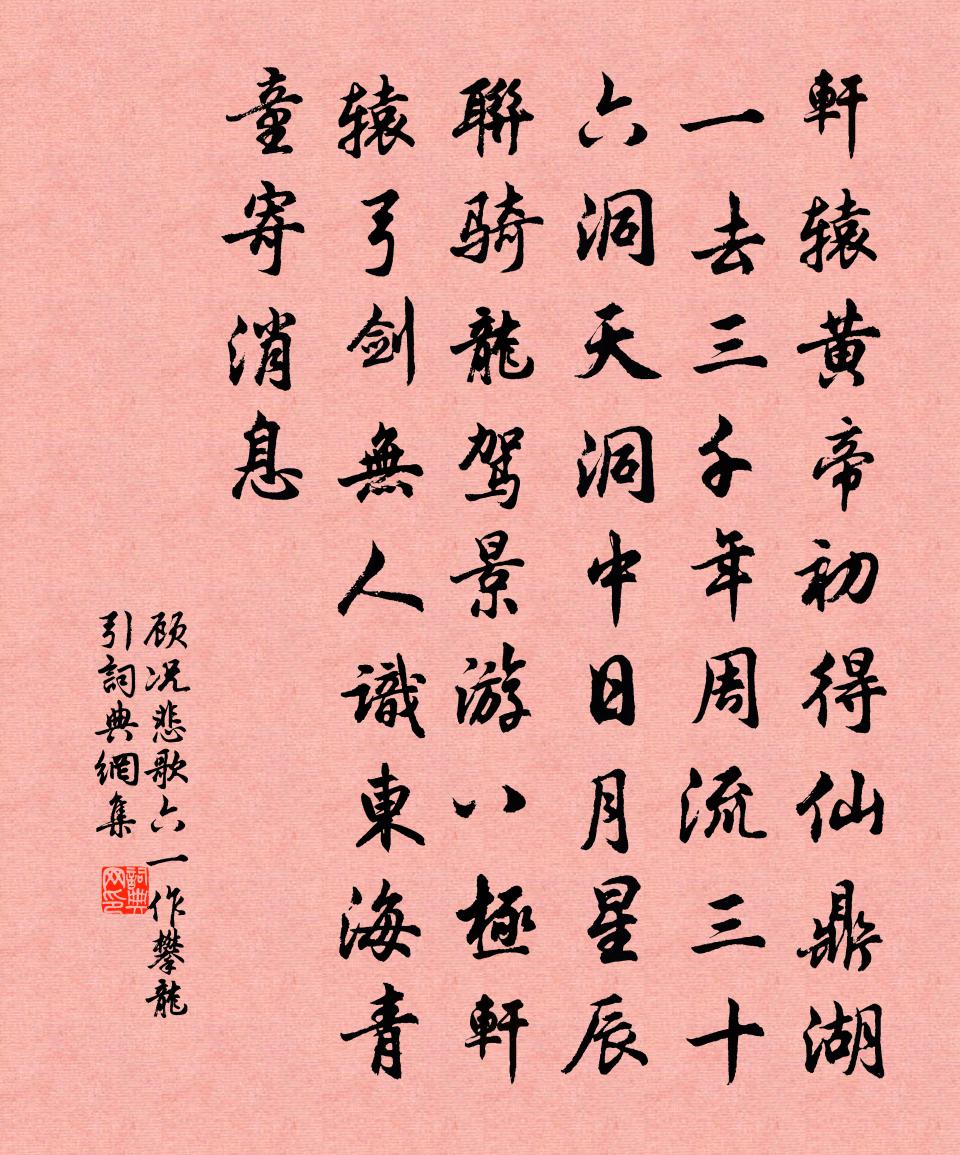 軒辕黄帝初得仙鼎湖
一去三千年周流三十
六洞天洞中日月星辰
聯骑龍駕景游八極軒
辕弓剑無人識東海青
童寄消息
顾况悲歌六一作攀龍
引詞典網集
詞典
网印